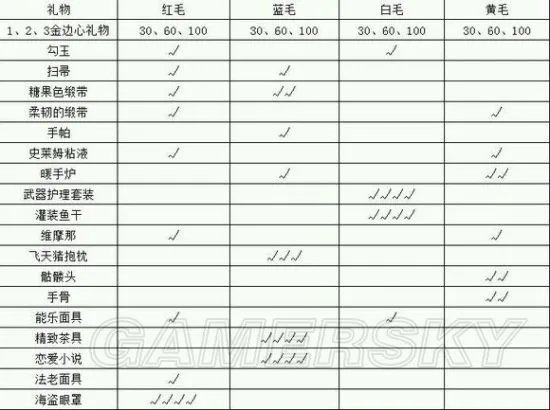 礼物 红毛 蓝毛 白毛 黄毛
1、2、3金边心礼物 30、60、100 30、60、100 30、60、100 30、60、100
勾玉 √ √
扫帚 √ √
糖果色缎带 √ √√
柔韧的缎带 √ √
手帕 √
史莱姆粘液 √ √
暖手炉 √ √√
武器护理套装 √√√√
灌装鱼干 √√√√
维摩那 √ √
飞天猪抱枕 √√√
骷髅头 √√
手骨 √√
能乐面具 √ √
精致茶具 √√√√
恋爱小说 √√√√
法老面具 √
海盗眼罩 √√√√
GAMERSKY